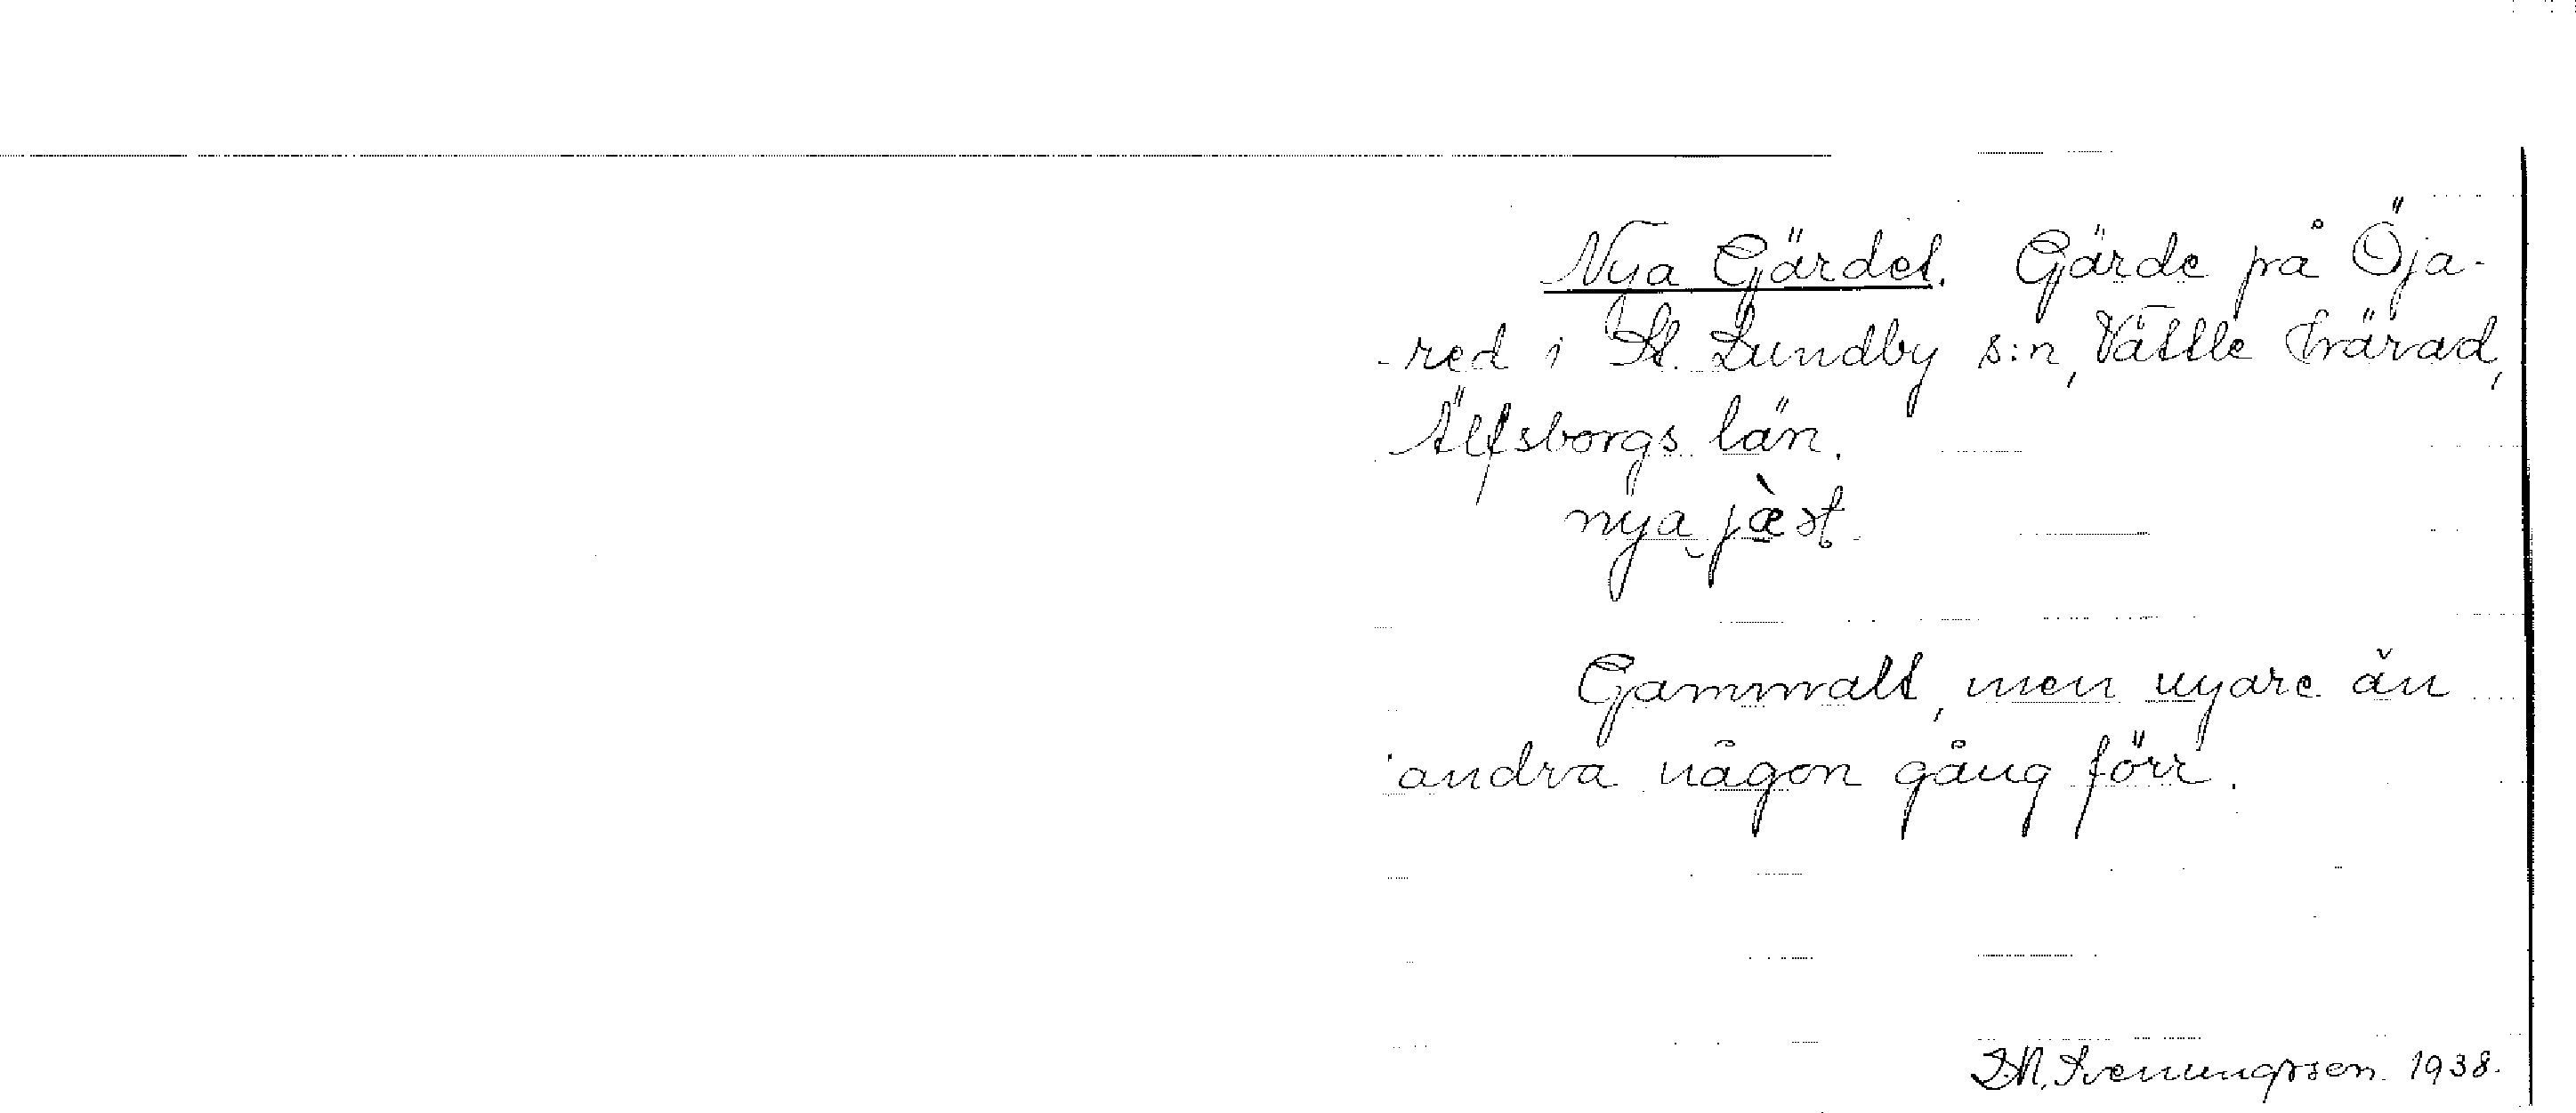 Nya Gärdet. Gärde på Öja-
-red i St. Lundby s:n, Vättle härad,
Älfsborgs län.
nya jæ̀ət
Gammalt, men nyare än
andra någon gång förr.
D.N. Svenungsson. 1938.